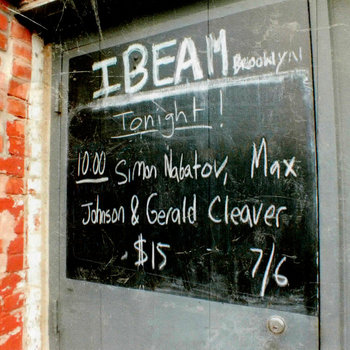 IBEAM BROOKLYN
Tonight!
10:00 Simon Nabatov, Max
Johnson & Gerald Cleaver
$15 7/6